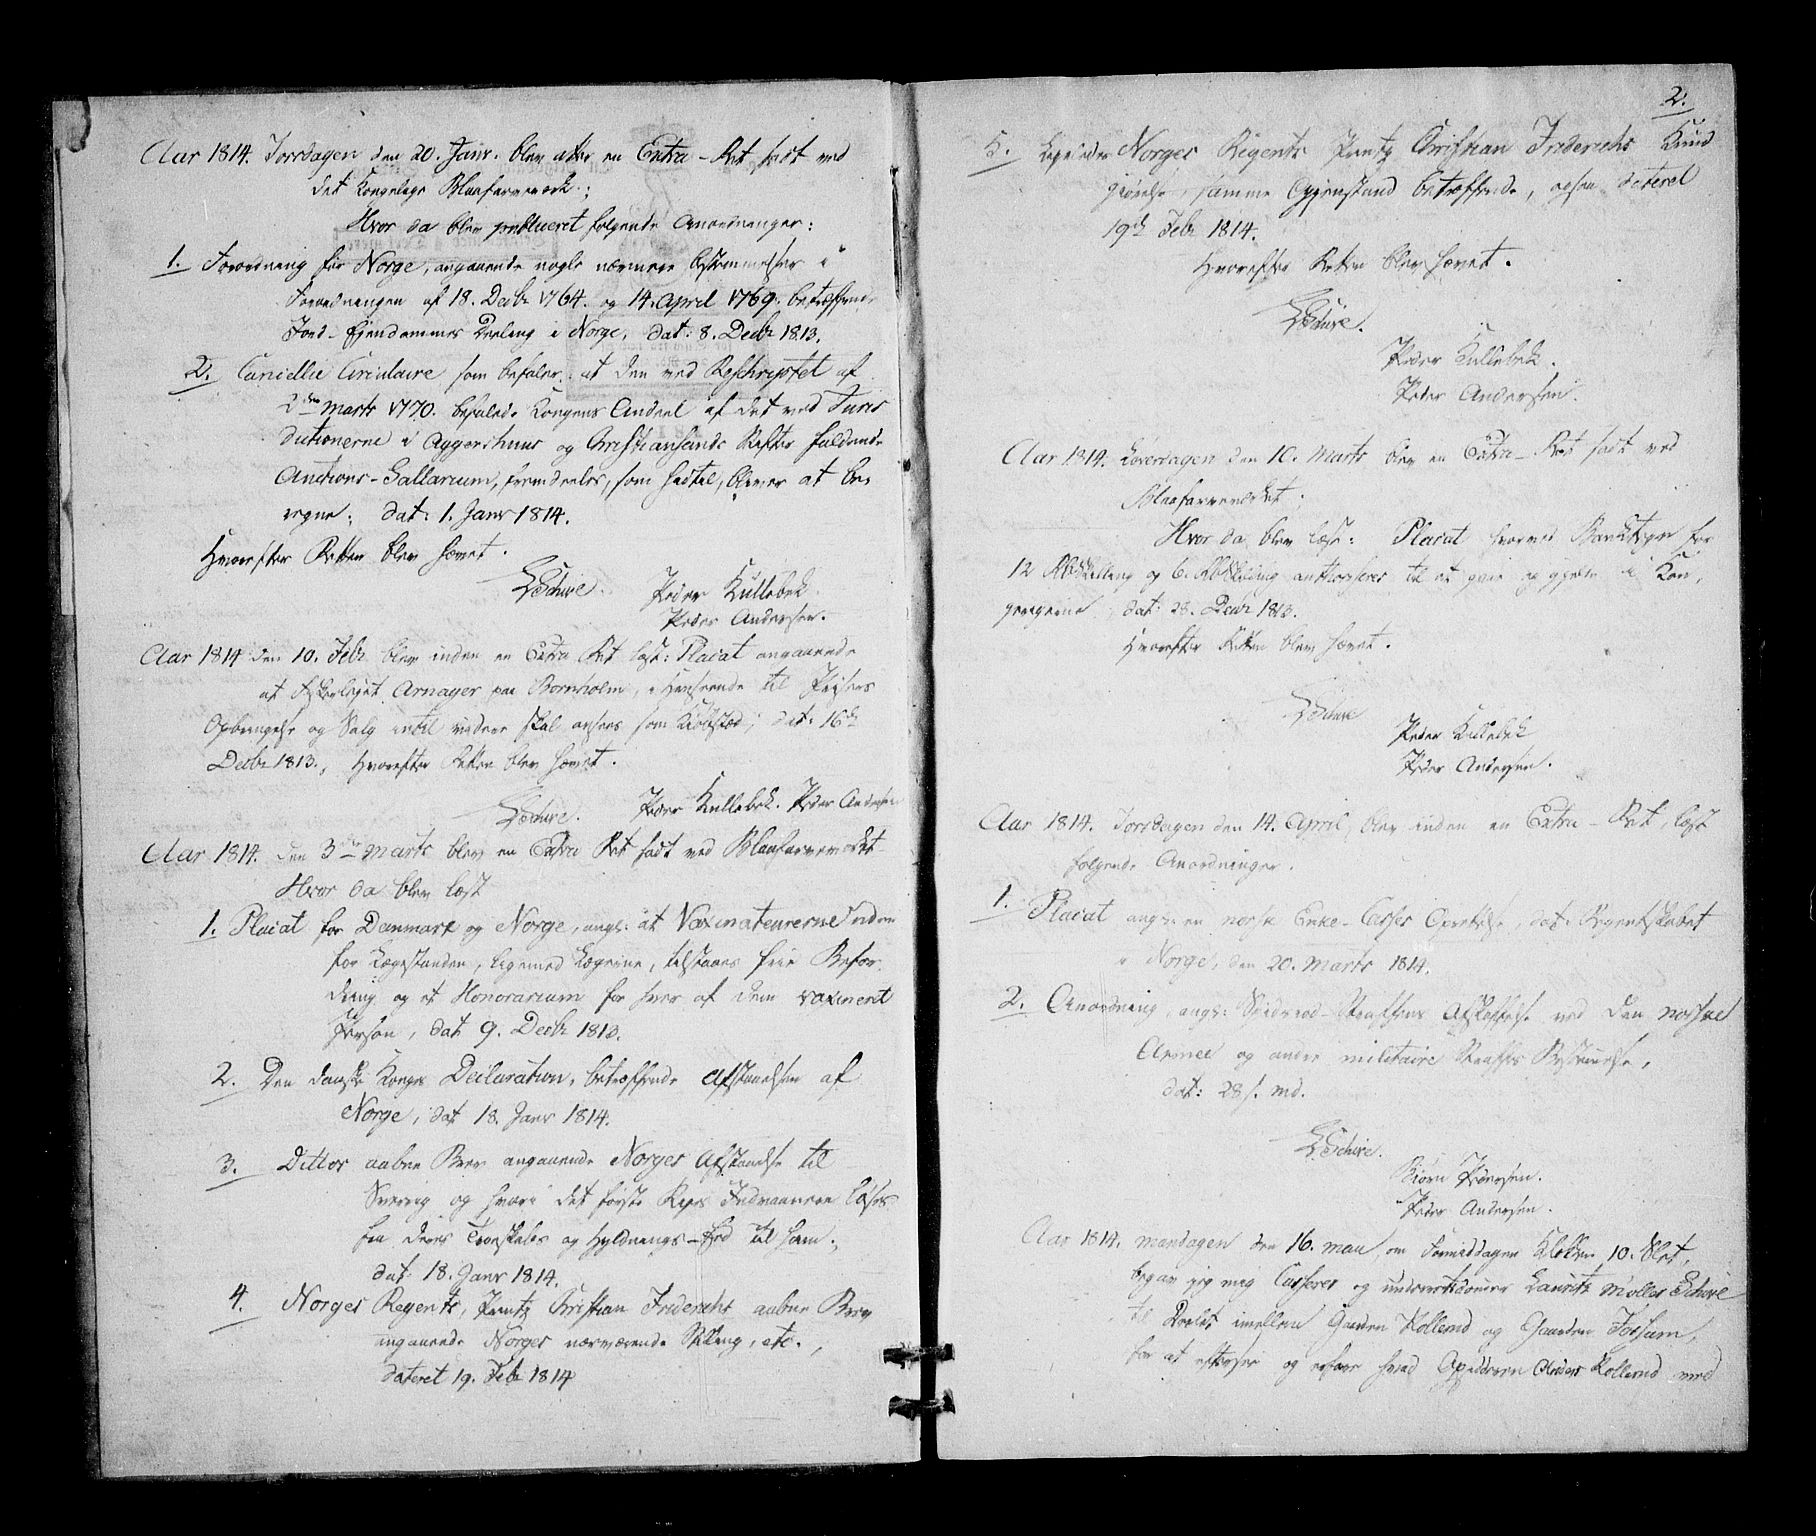 Aar 1814. Torsdagen den 20. Janr. blev atter en Extra-Ret sadt ved
det Kongelige Blaafarveværk;
Hvor da blev publiceret følgende Anordninger:
1. Forordning for Norge, angaaende nogle nærmere bestemmelser i
Forordningen af 18. Decbr 1764. og 14. April 1769. betræffende
Jord-Eiendommes Deeling i Norge, dat: 8. Decbr 1813.
2. Cancellie Circulaire som befaler: at den ved Rescriptet af
2den Marts 1770. befalede Kongens Andeel af det ved Juris
dictionerne i Aggershuus og Christiansands Stifter faldende
Auctions-Sallarium, fremdeeles, som hidtil, bliver at be-
regne; dat: 1. Janr 1814.
Hvorefter Retten blev hævet.
LSchive. Peder Küllebek.
Peder Andersen.
Aar 1814 den 10. Febr blev inden en Extra Ret læst: Placat angaaende
at Fiskerleiet Arnager paa Bornholm, i Henseende til Prisers
Opbringelse og Salg indtil videre skal ansees som Kiøbstæd; dat: 16de
Decbr 1813., Hvorefter Retten blev hævet.
LSchive. Peder Küllebek. Peder Andersen
Aar 1814. den 3die Marts blev en Extra Ret sadt ved Blaafarveværket
Hvor da blev læst
1. Placat for Danmark og Norge, angl: at Vaxinateurerne uden
for Lægestanden, ligemed Lægerne, tilstaaes frie Befor-
dring og et Honorarium for hver af dem vaxineret
Person, dat 9. Decbr 1813.
2. Den danske Konges Declaration, betræffende Afstaaelsen af
Norge, dat 18. Janr 1814.
3. Dittos aabne Brev angaaende Norges Afstaaelse til
Sverrig og hvori det første Riges Indvaanere løses
fra deres Troeskabs og Hyldnings-Eed til ham;
dat: 18. Janr 1814.
4. Norges Regents, Printz Christian Friderichs aabne Brev
angaaende Norges nærværende Stilling, etc.,
dateret 19. Febr 1814
2.
5. Norges Regents Printz Christian Friderichs Kund
giørelse, samme Gjenstand betræffende, ogsaa dateret
19de Febr 1814.
Hvorefter Retten blev hævet.
LSchive.
Peder Küllebek.
Peder Andersen.
Aar 1814. Løverdagen den 10. Marts blev en Extra-Ret sadt ved
Blaafarveværket;
Hvor da blev læst: Placat hvorved Banktegn for
12 RbSkilling og 6. RbSkilling authoriseres til at gaae og gjelde i Kon-
gerigerne dat: 28. Decbr 1813.
Hvorefter Retten blev hævet.
LSchive
Peder Küllebek
Peder Andersen.
Aar 1814. Torsdagen den 14. April, blev inden en Extra-Ret, læst
følgende Anordninger.
1. Placat angl: en norsk Enke-Casses Oprettelse, dat: Regentskabet
i Norge, den 20. Marts 1814.
2. Anordning, angl: Spidsrod-Straffens Afskaffelse ved den norske
Armee og andre militaire Straffes Bestemmelse,
dat: 28 s. md.
LSchive.
Biørn Pedersen.
Peder Andersen.
Aar 1814. Mandagen den 16. May om Formiddagen Klokken 10. Slet,
begav jeg mig Casserer og underskrevne Lauritz Møller Schive
til Deelet imellem Gaarden Kollerud og Gaarden Fossum,
for at eftersee og erfare hvad Opsidderen Anders Kollerud med